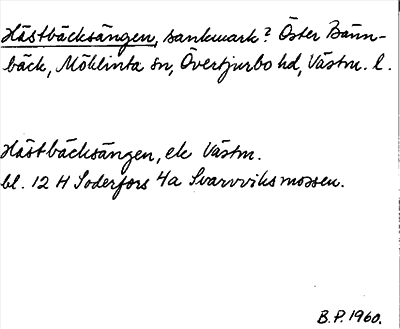 Hästbäcksängen, sankmark? Öster Bänn-
bäck, Möklinta sn, Övertjurbo hd, Västm. l.
Hästbäcksängen, ek Västm.
bl. 12 H Söderfors 4a Svarvviksmossen.
B.P. 1960.